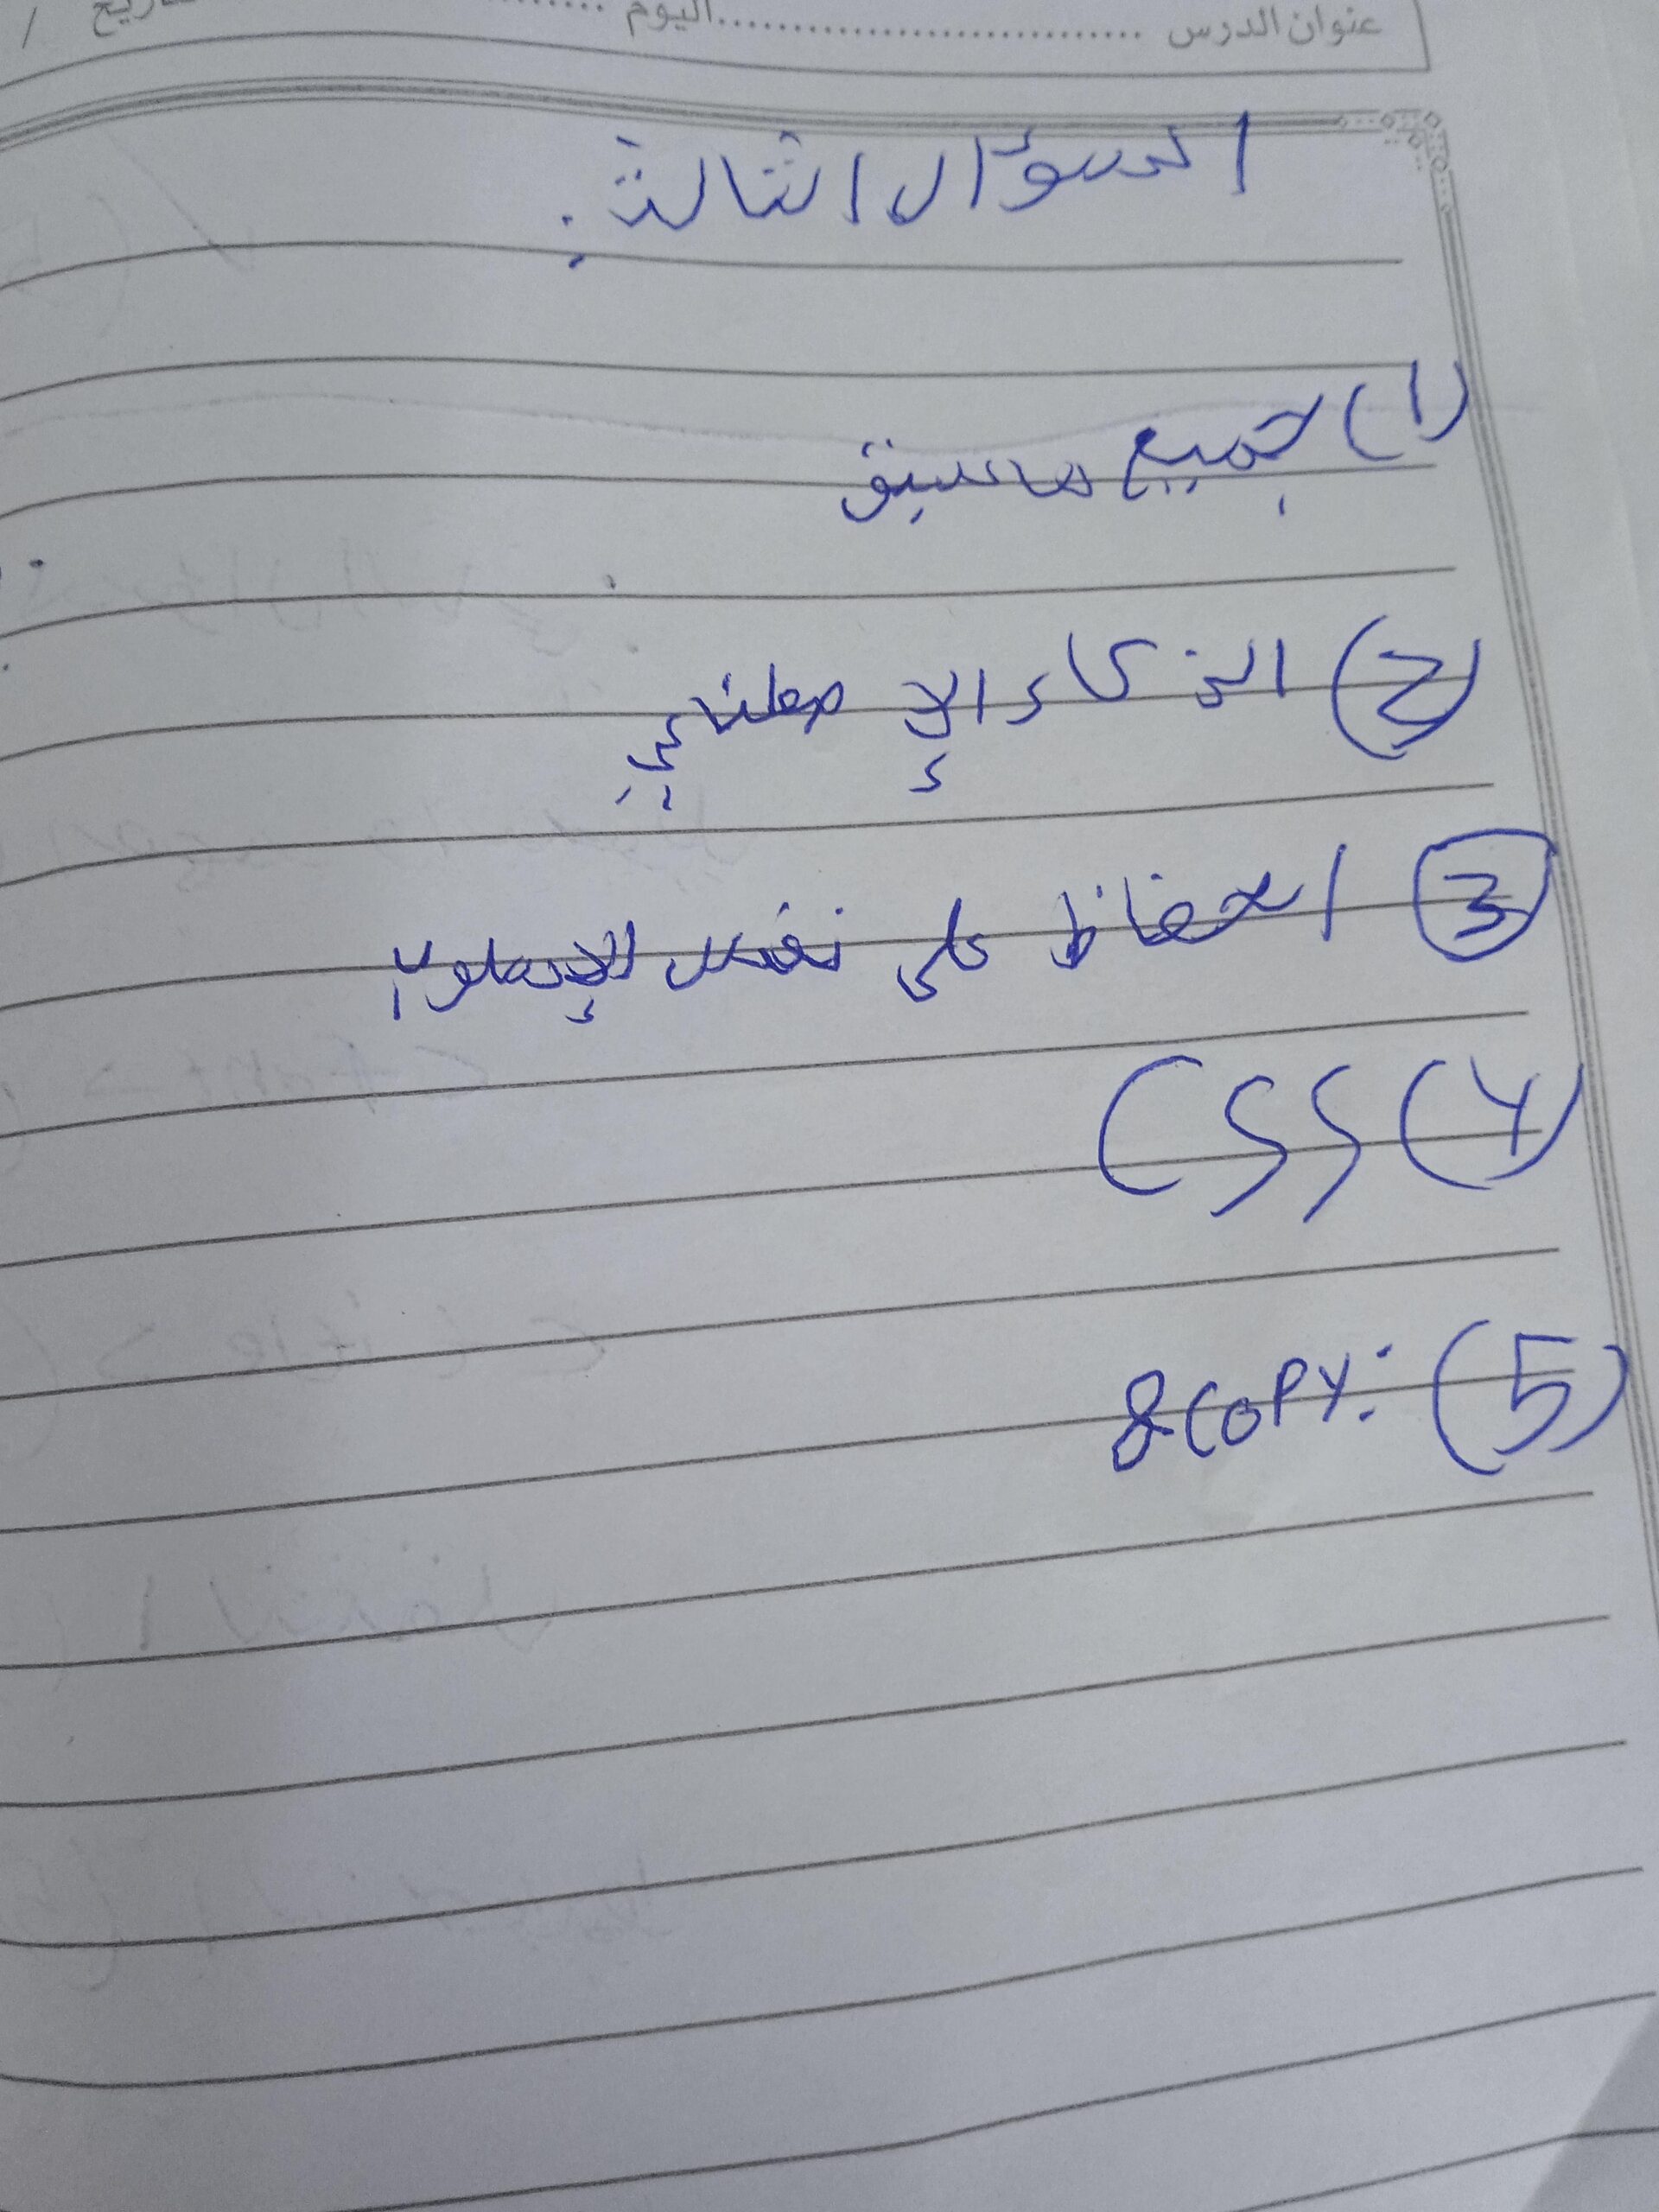 عنوان الدرس ............................ اليوم ............ تاريخ /
السؤال الثالث:
(1) جميع ما سبق
(2) الذكاء الإصطناعي
(3) الحفاظ على نفس الإسلوب
(4) CSS
(5) &COPY: